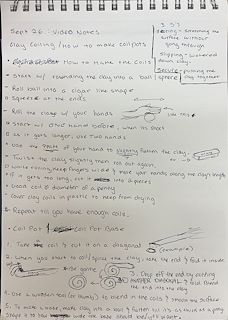 Sept 26 - VIDEO NOTES
3 S's
Scoring - Scratching the
surface without
going through
Slipping - watered
down clay.
Secure - pushing the
clay together
Clay coiling / how to make coilpots
How to Make the Coils
• Start w/ rounding the clay into a ball
• Roll ball into a cigar like shape
• Squeeze at the ends
• Roll the clay w/ your hands
like this
• Start w/ ONE hand before, when its short
• As it gets longer, use TWO hands
• Use the palm of your hand to slightly flatten the clay.
• Twist the clay slightly then roll out again.
• While rolling keep fingers wide & move your hands along the clays length
• If it gets too long, cut it into 2 pieces
• Good coil = diameter of a penny
• Cover clay coils in plastic to keep from drying
• Repeat till you have enough coils.
• Coil Pot Coil Pot Base
1. Take coil & cut it on a diagonal (example)
2. When you start to coil/spiral the clay, take the end & fold it inside
the same
3. Drop off the end by cutting
ANOTHER DIAGONAL & fold/blend
the end into the clay
4. Use a wooden tool (or thumb) to blend in the coils & smooth the surface
5. To make a base, make clay into a ball & flatten till its as thick as a penny
shape it to how wide the base should be of the planter.